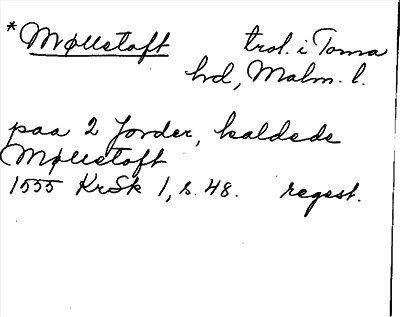 *Mølletoft trol. i Torna
hd, Malm. l.
paa 2 Jorder, kaldede
Mølletoft
1555 KrSk 1, s. 48. regest.